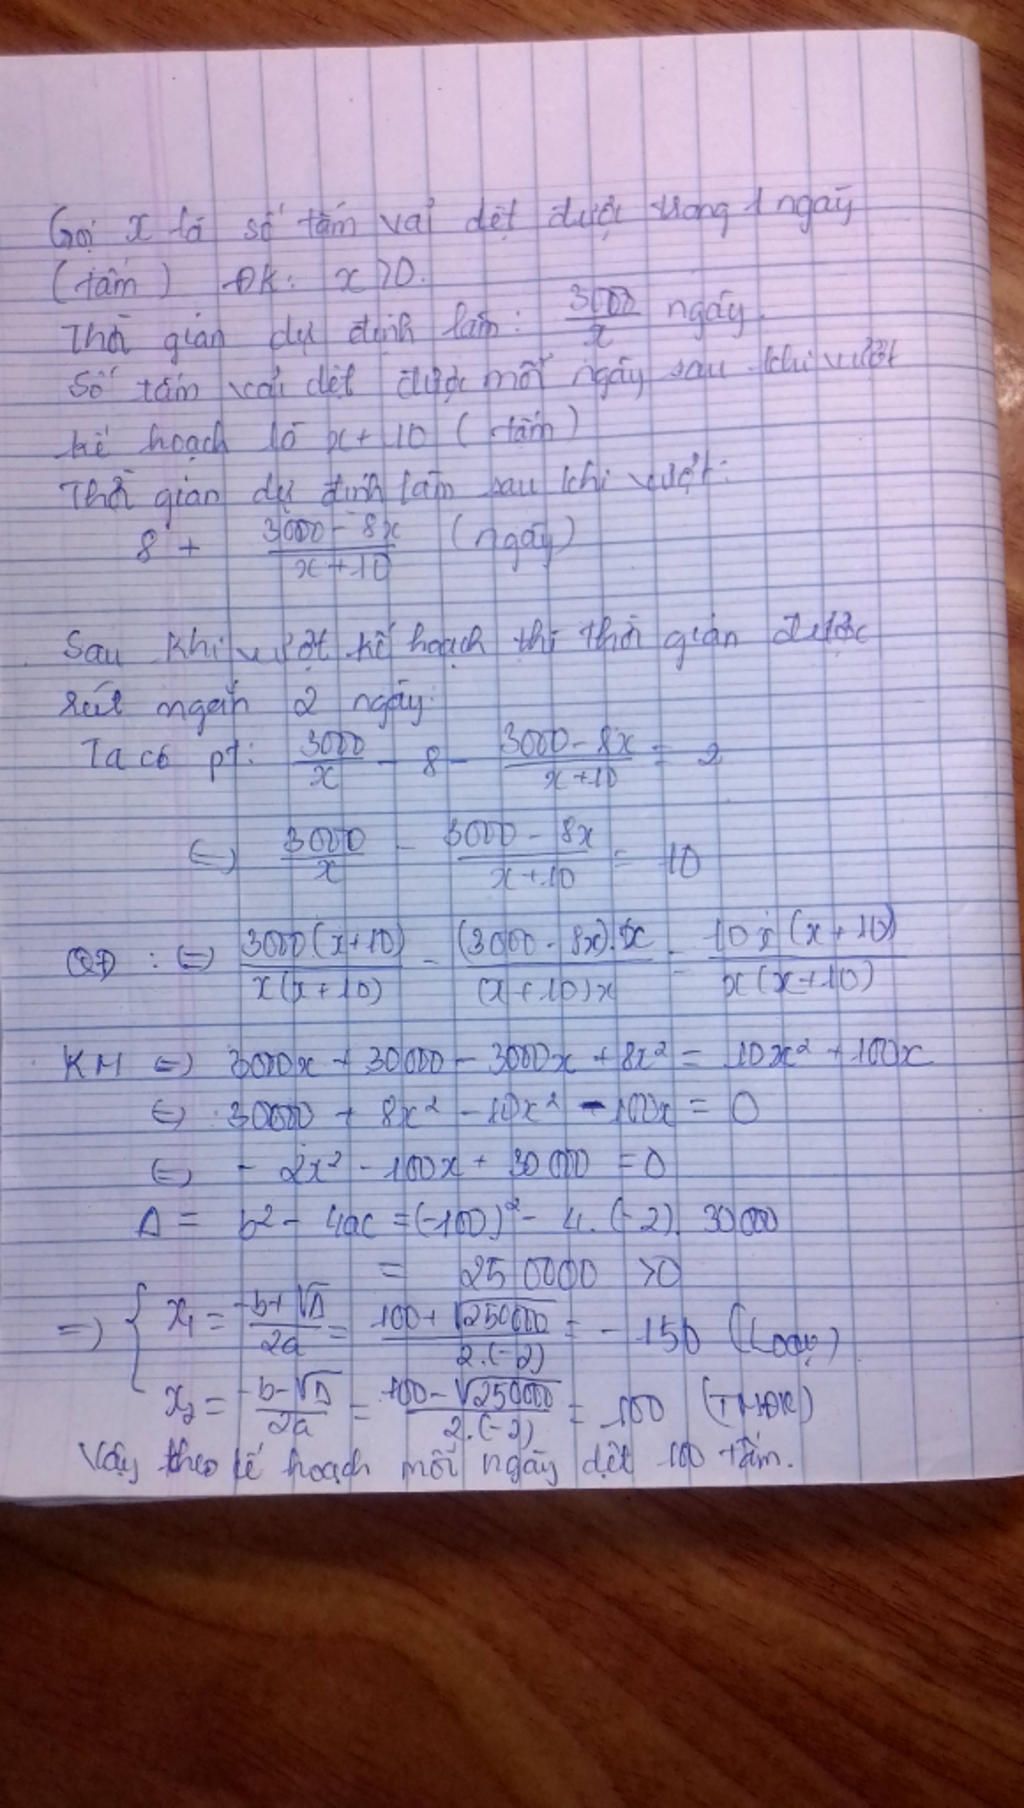 Gọi x là số tấm vải dệt được trong 1 ngày
(tấm) ĐK: x>0.
Thời gian dự định làm: 3000/x ngày.
Số tấm vải dệt được mỗi ngày sau khi vượt
kế hoạch là x+10 (tấm)
Thời gian dự định làm sau khi vượt:
8 + (3000-8x)/(x+10) (ngày)
Sau khi vượt kế hoạch thì thời gian được
rút ngắn 2 ngày:
Ta có pt: 3000/x - 8 - (3000-8x)/(x+10) = 2
⇔ 3000/x - (3000-8x)/(x+10) = 10
QĐ : ⇔ 3000(x+10)/x(x+10) - (3000-8x).x/(x+10)x = 10x(x+10)/x(x+10)
KM ⇔ 3000x + 30000 - 3000x + 8x² = 10x² + 100x
⇔ 30000 + 8x² - 10x² - 100x = 0
⇔ - 2x² - 100x + 30000 = 0
Δ = b² - 4ac = (-100)² - 4.(-2).30000
= 250000 >0
⇒ { x₁ = (-b+√Δ)/2a = (100+√250000)/2.(-2) = -150 (Loại)
x₂ = (-b-√Δ)/2a = (100-√250000)/2.(-2) = 100 (TMĐK)
Vậy theo kế hoạch mỗi ngày dệt 100 tấm.